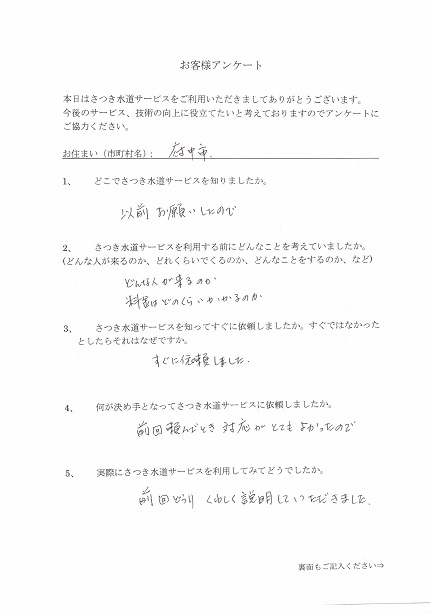 お客様アンケート
本日はさつき水道サービスをご利用いただきましてありがとうございます。
今後のサービス、技術の向上に役立てたいと考えておりますのでアンケートに
ご協力ください。
お住まい（市町村名）： 府中市.
1、 どこでさつき水道サービスを知りましたか。
以前お願いしたので
2、 さつき水道サービスを利用する前にどんなことを考えていましたか。
(どんな人が来るのか、どれくらいでくるのか、どんなことをするのか、など)
どんな人が来るのか
料金はどのくらいかかるのか
3、 さつき水道サービスを知ってすぐに依頼しましたか。すぐではなかった
としたらそれはなぜですか。
すぐに依頼しました.
4、 何が決め手となってさつき水道サービスに依頼しましたか。
前回頼んだとき対応がとてもよかったので
5、 実際にさつき水道サービスを利用してみてどうでしたか。
前回どうり くわしく説明していただきました.
裏面もご記入ください⇒